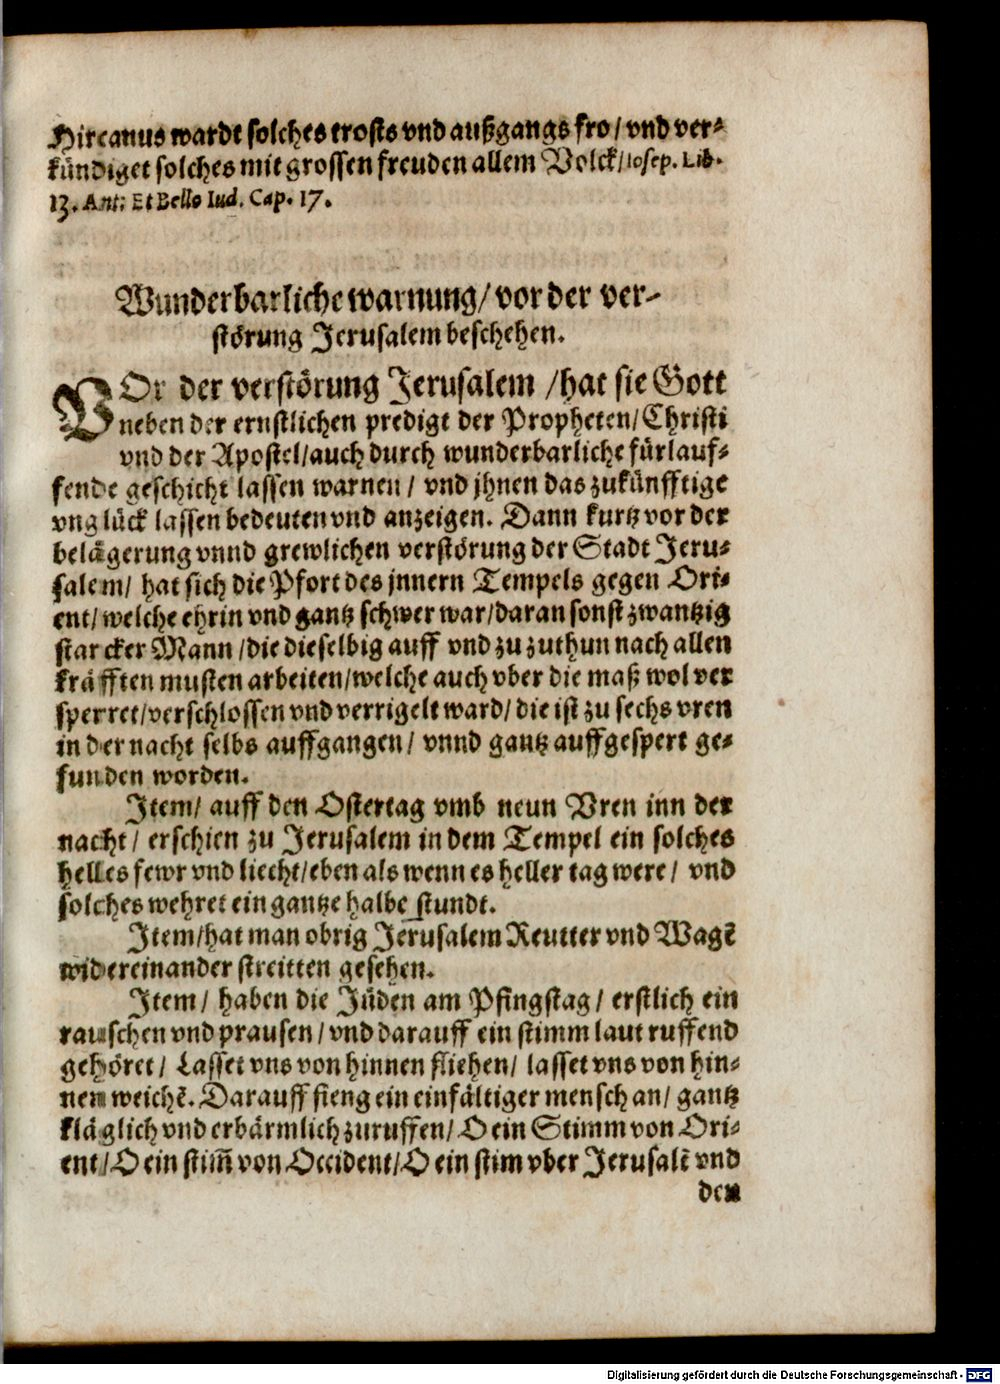 Hircanus wardt solches trosts vnd außgangs fro / vnd ver-
kündiget solches mit grossen freuden allem Volck / Iosep. Lib.
13. Ant: Et Bello Iud. Cap. 17.
Wunderbarliche warnung / vor der ver-
störung Jerusalem beschehen.
VOr der verstörung Jerusalem / hat sie Gott
neben der ernstlichen predigt der Propheten / Christi
vnd der Apostel / auch durch wunderbarliche fürlauf-
fende geschicht lassen warnen / vnd jhnen das zukünfftige
vnglück lassen bedeuten vnd anzeigen. Dann kurtz vor der
belägerung vnnd grewlichen verstörung der Stadt Jeru-
salem / hat sich die Pfort des jnnern Tempels gegen Ori-
ent / welche ehrin vnd gantz schwer war / daran sonst zwantzig
starcker Mann / die dieselbig auff vnd zu zuthun nach allen
kräfften musten arbeiten / welche auch vber die maß wol ver
sperret / verschlossen vnd verrigelt ward / die ist zu sechs vren
in der nacht selbs auffgangen / vnnd gantz auffgespert ge-
funden worden.
Item / auff den Ostertag vmb neun Vren inn der
nacht / erschien zu Jerusalem in dem Tempel ein solches
helles fewr vnd liecht / eben als wenn es heller tag were / vnd
solches wehret ein gantze halbe stundt.
Item / hat man obrig Jerusalem Reutter vnd Wagẽ
widereinander streitten gesehen.
Item / haben die Jüden am Pfingstag / erstlich ein
rauschen vnd prausen / vnd darauff ein stimm laut ruffend
gehöret / Lasset vns von hinnen fliehen / lasset vns von hin-
nen weichẽ. Darauff fieng ein einfältiger mensch an / gantz
kläglich vnd erbärmlich zuruffen / O ein Stimm von Ori-
ent / O ein stim̃ von Occident / O ein stim vber Jerusalẽ vnd
den
Digitalisierung gefördert durch die Deutsche Forschungsgemeinschaft - DFG